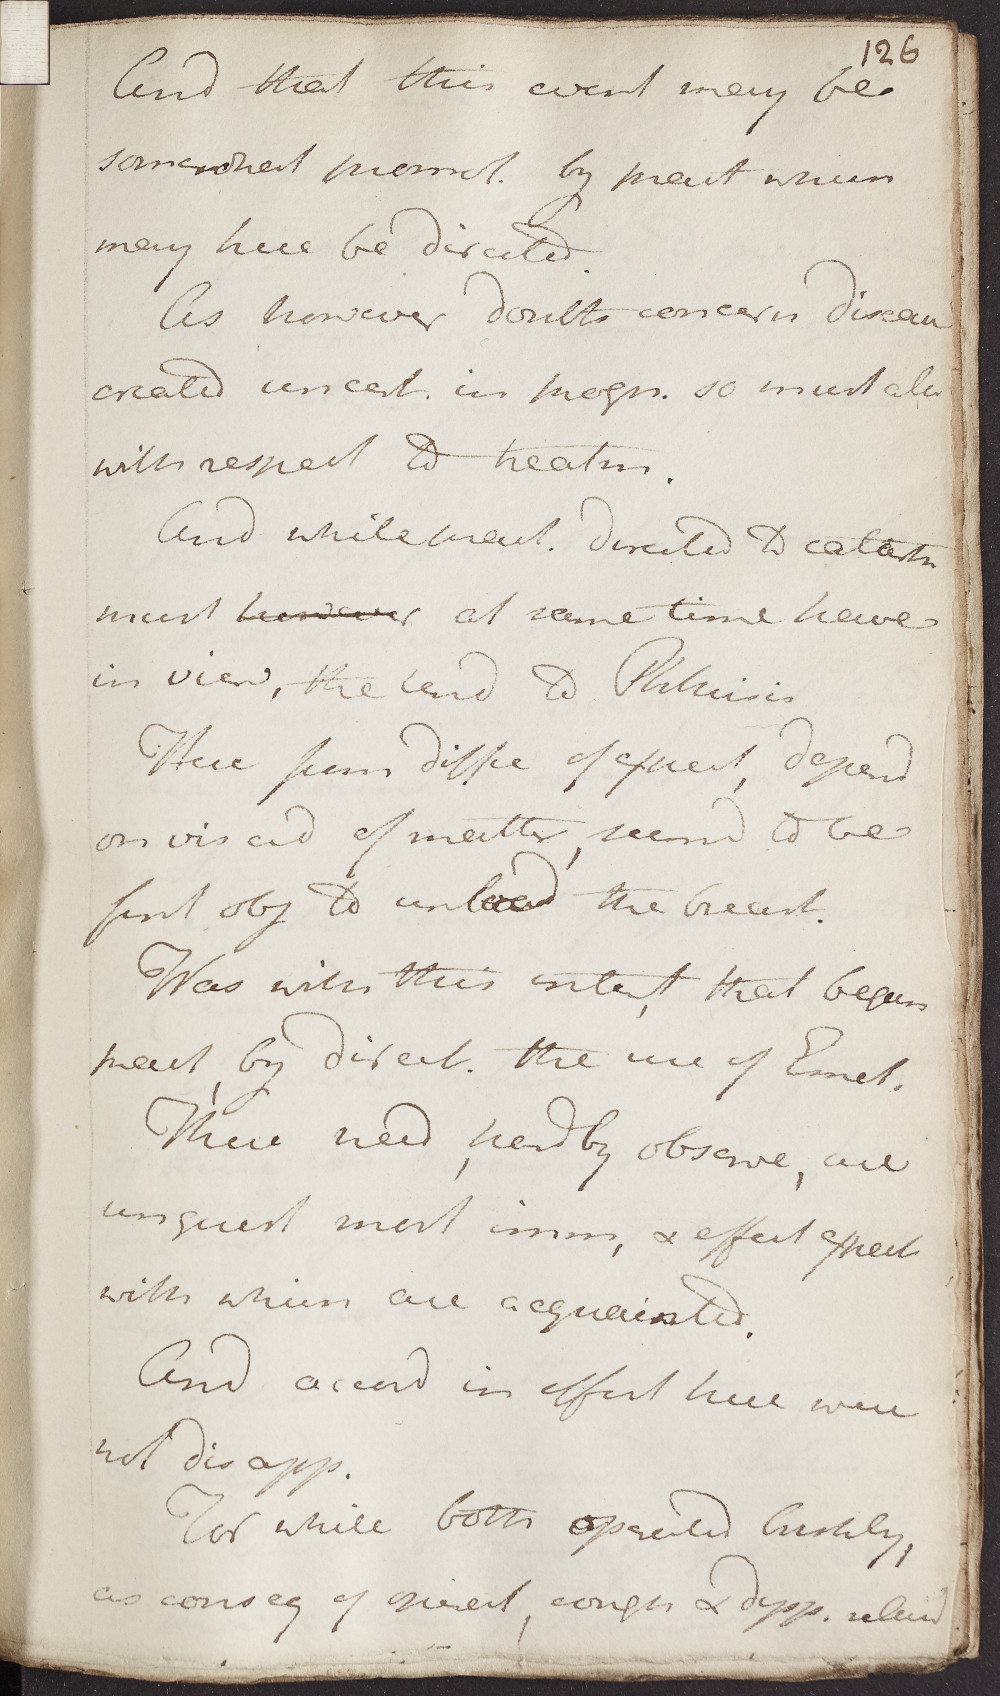 126
And that this event may be
somewhat promot. by pract which
may here be directed.
As however doubts concern disease
created uncert. in progn. so must also
with respect to treatm.
And while pract. directed to catarrh
must however at same time have
in view, the tend to Phthisis
Here from diffic of expect, depend
on viscid of matter, seem'd to be
first obj to unload the breast.
Was with this intent, that began
pract, by direct. the use of Emet.
These need, hardly observe, are
unquest most imm, & effect expect
with which are acquainted.
And accord in effect here were
not disapp.
For while both operated briskly,
as conseq of operat, cough & dysp. reliev'd